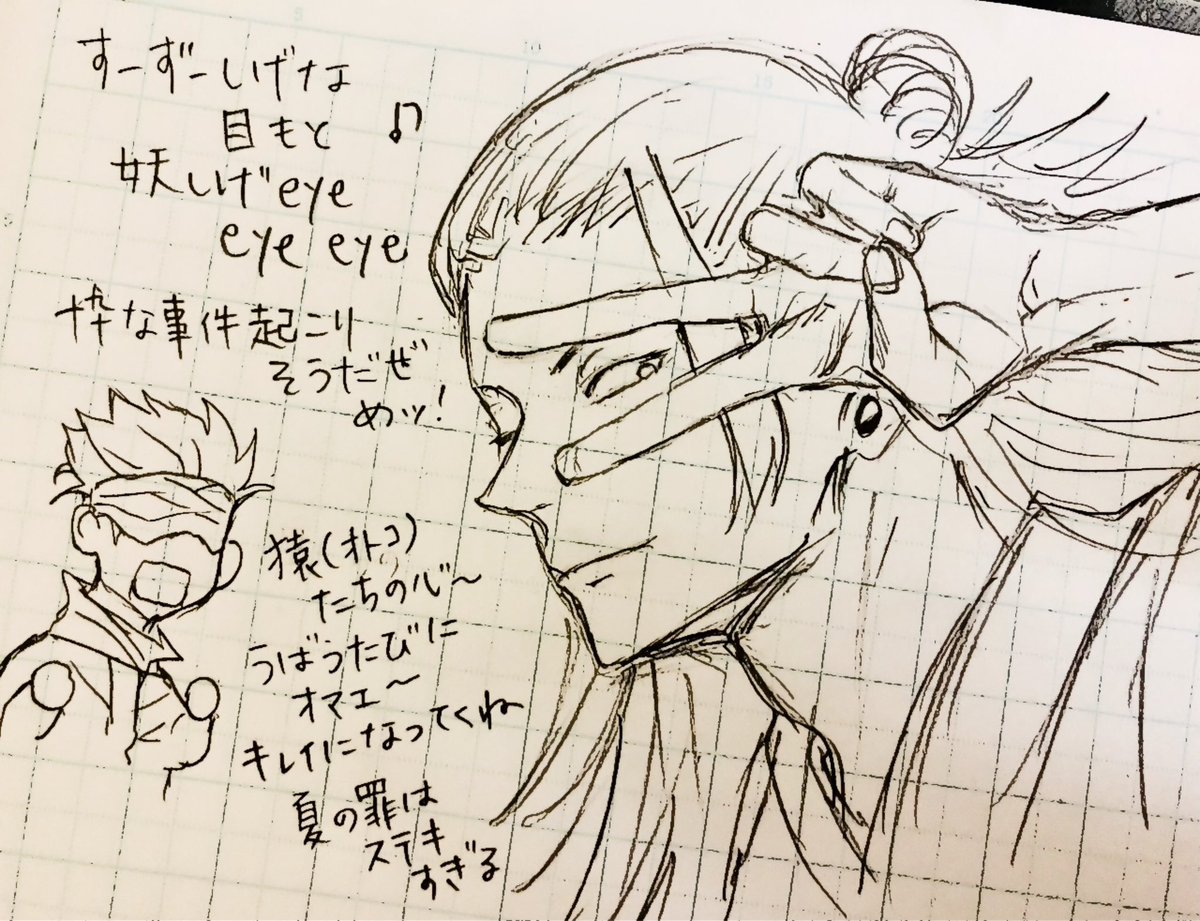 すーずーしげな
目もと ♪
妖しげeye
eye eye
粋な事件起こり
そうだぜ
めッ!
猿(オトコ)
たちの心〜
うばうたびに
オマエ〜
キレイになってくね
夏の罪は
ステキ
すぎる